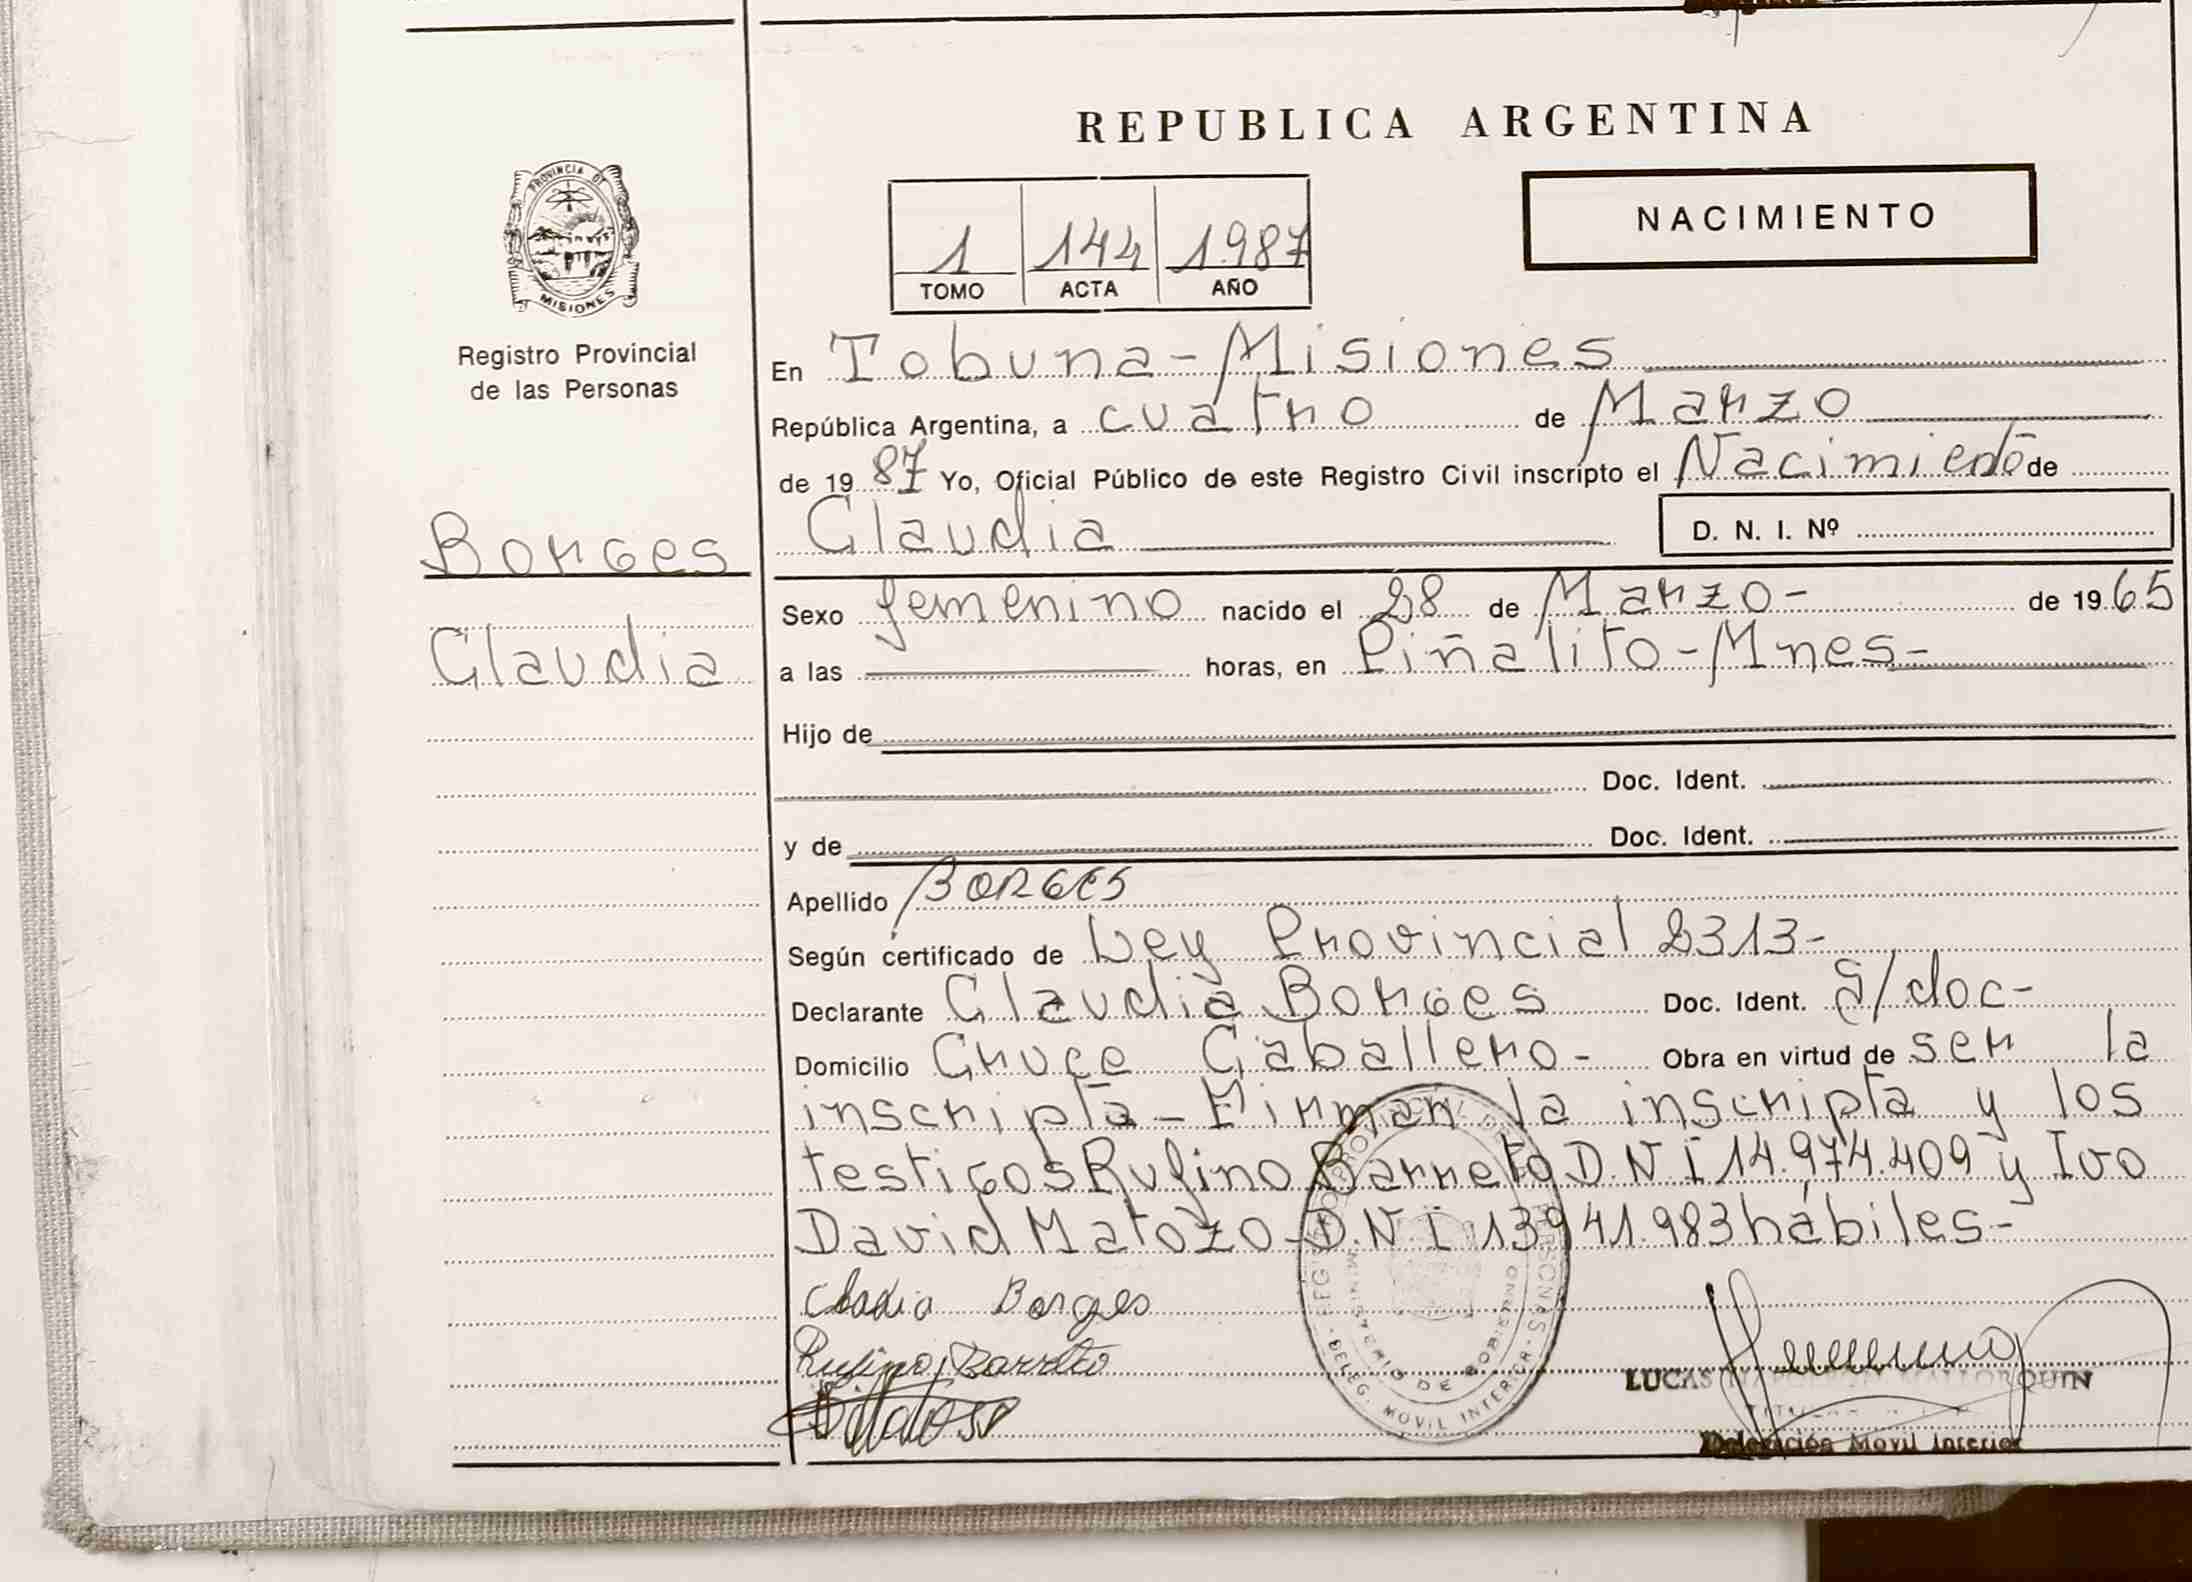 REPUBLICA ARGENTINA
PROVINCIA DE
MISIONES
Registro Provincial
de las Personas
NACIMIENTO
1 144 1987
TOMO ACTA AÑO
En Tobuna - Misiones
República Argentina, a cuatro de Marzo
de 19 87 Yo, Oficial Público de este Registro Civil inscripto el Nacimiento de
Borges
Claudia
Claudia
D. N. I. Nº
Sexo femenino nacido el 28 de Marzo - de 19 65
a las horas, en Piñalito - Mnes -
Hijo de
Doc. Ident.
y de Doc. Ident.
Apellido BORGES
Según certificado de Ley Provincial 2313 -
Declarante Claudia Borges Doc. Ident. S/doc -
Domicilio Cruce Caballero - Obra en virtud de ser la
inscripta - Firman la inscripta y los
testigos Rufino Barreto D.N I 14.974.409 y Ivo
David Matozo - D.N I 13941.983 hábiles -
Claudia Borges
Rufino Barreto
Matoso
REG PROVINCIAL DE PERSONAS
MINISTERIO DE GOBIERNO
DELEG. MOVIL INTERIOR
LUCAS MALLORQUIN
Delegación Movil Interior